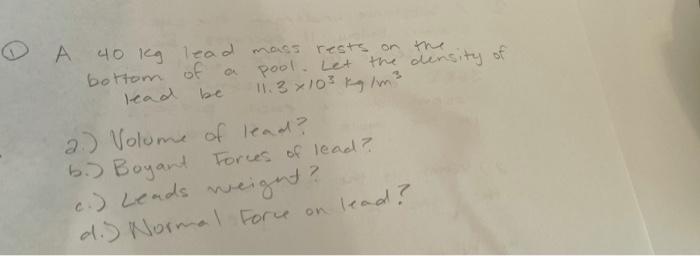 ① A 40 kg lead mass rests on the
bottom of a pool. Let the density of
lead be 11.3 x 10³ kg/m³
a.) Volume of lead?
b.) Boyant Forces of lead?
c.) Leads weight?
d.) Normal Force on lead?